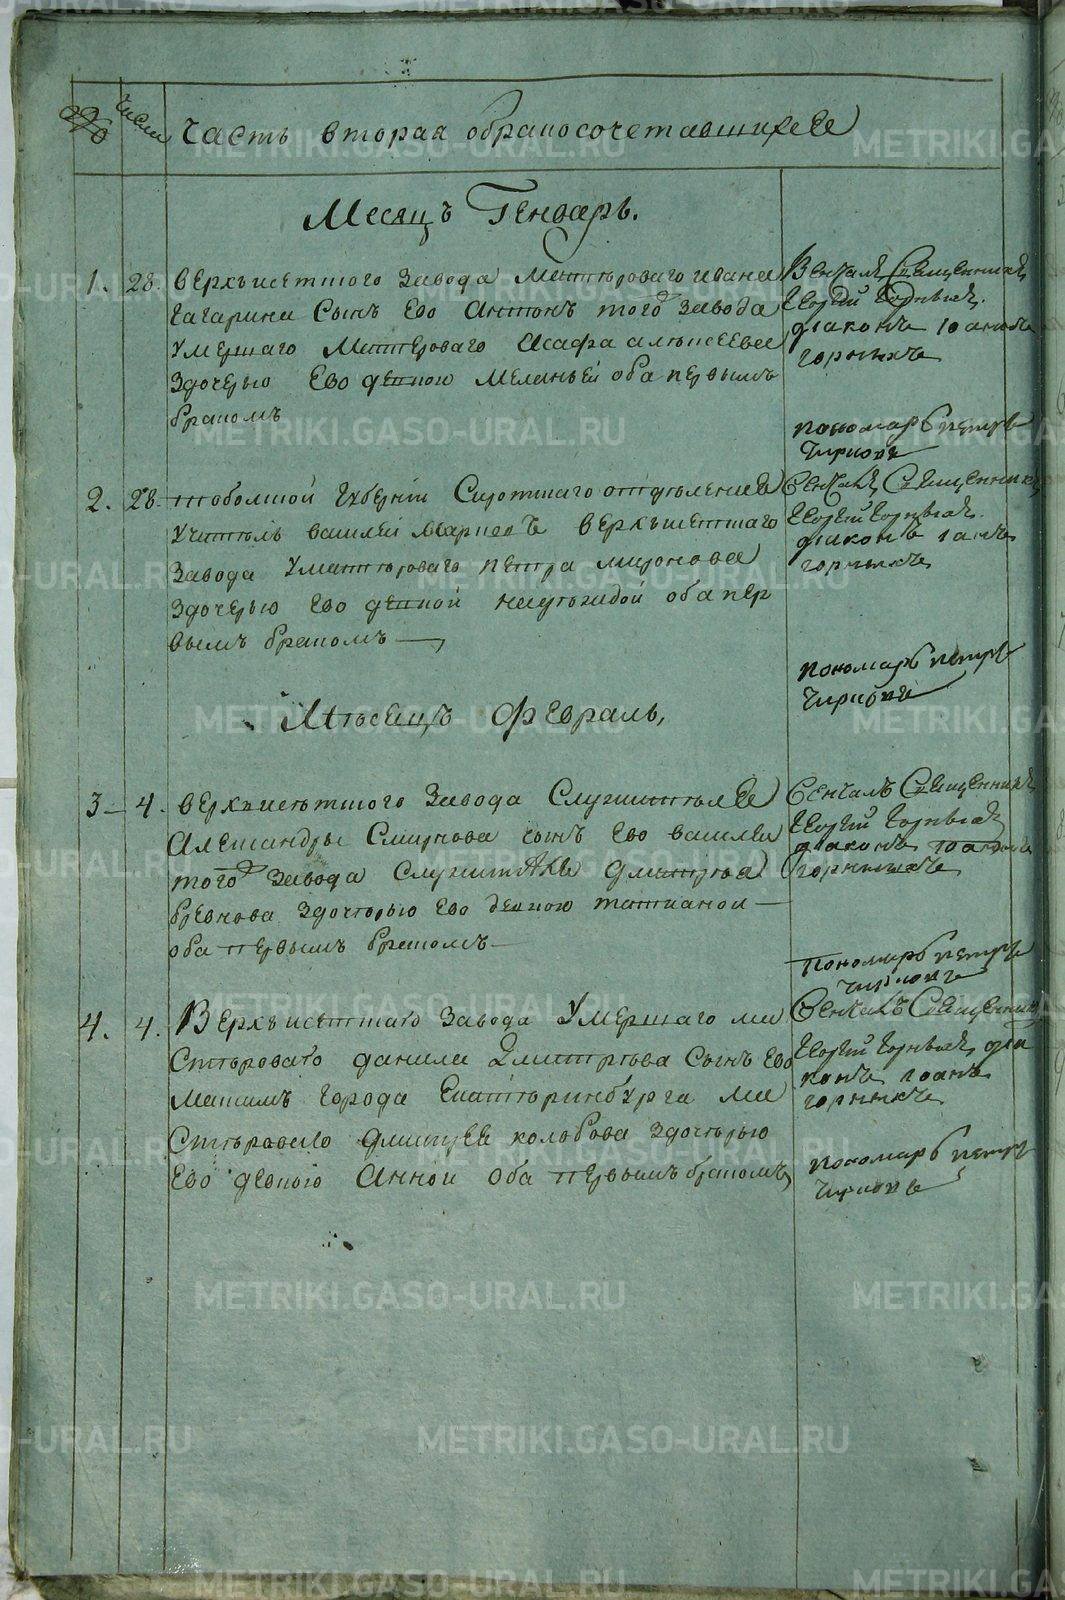 Числа
Часть вторая обракосочетавшихсе
Месяцъ Генварь.
1. 28. Верхъисетскаго завода мастероваго ивана
Гагарина Сынъ Его Антонъ того завода
Умершаго Мастероваго Асафа алексеева
Здочерью Его девкою Меланьей оба первымъ
бракомъ
Венчалъ Священникъ
Георгий
диаконъ иоаннъ
горныхъ
пономарь петръ
Чирковъ
2. 28. тобольской Губернии Сиротскаго отделения
Учитель василей Марковъ верхъисетскаго
завода Умастероваго петра миронова
Здочерью его девкой оба пер
вымъ бракомъ
Венчалъ Священникъ
Георгий
диаконъ иоаннъ
горныхъ
пономарь петръ
Чирковъ
Месецъ Февраль,
3 4. верхъисетского завода Служителя
Александры Смирнова сынъ Его василей
того завода Служителя дмитрея
бревнова здочерью Его девкою татианой
оба первымъ бракомъ
Венчалъ Священникъ
Георгий
диаконъ иоаннъ
горныхъ
Пономарь петръ
чирковъ
4. 4. Верхъисетскаго завода Умершаго ма
Стероваго данила Дмитриева Сынъ Его
Максимъ города Екатеринбурга Ма
Стероваго колобова здочерью
Его девкою Анной оба первымъ бракомъ
Венчалъ Священникъ
Георгий диа
конъ иоаннъ
горныхъ
пономарь петръ
Чирковъ
METRIKI.GASO-URAL.RU